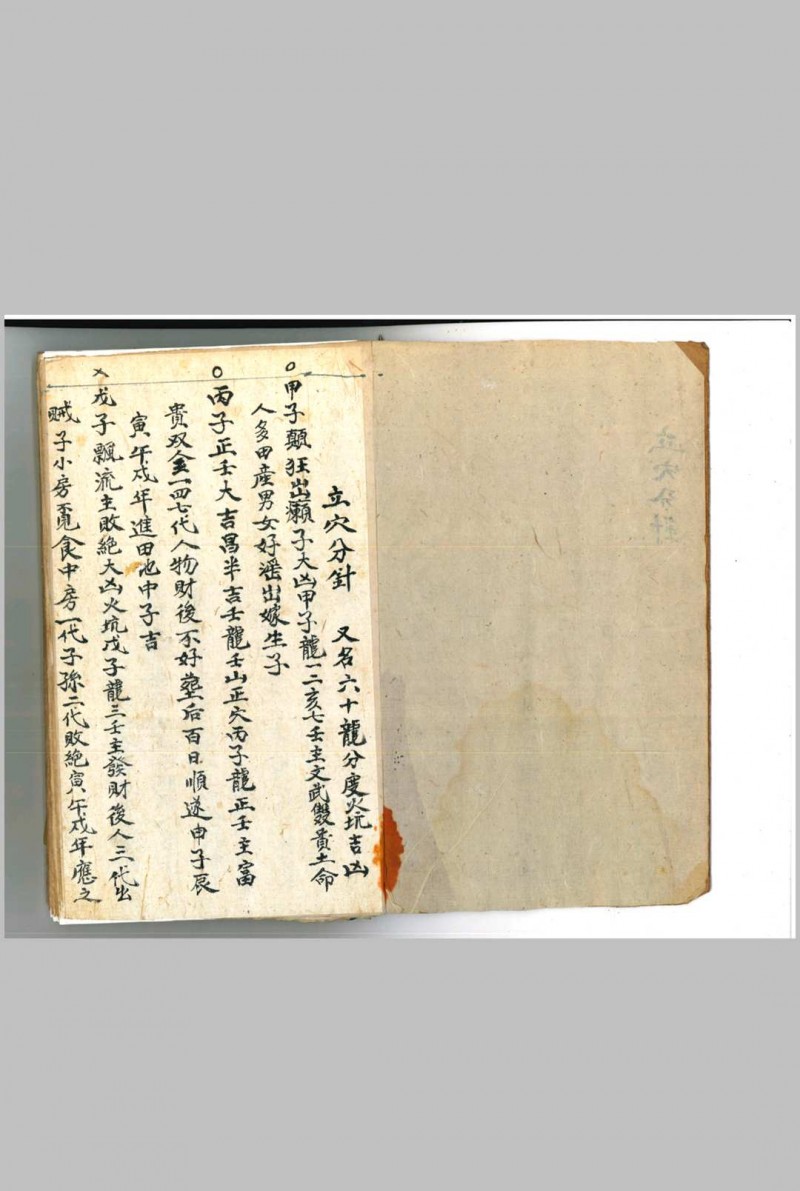 立穴分針
立穴分針　又名六十龍分度火坑吉凶
甲子顛狂出癩子大凶甲子龍一二亥七壬主文武雙貴土命
人多田産男女好滛出嫁生子
丙子正壬大吉昌半吉壬龍壬山正穴丙子龍正壬主富
貴双全一四七代人物財後不好塟后百日順遂申子辰
寅午戍年進田地中子吉
戊子飄流主敗絶大凶火坑戊子龍三壬主發財後人三代出
賊子小房覔食中房一代子孫二代敗絶寅午戍年應之